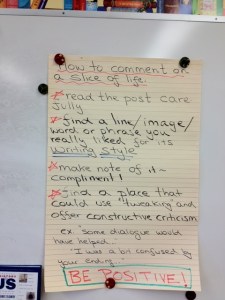 How to comment on
a slice of life:
read the post care
fully
find a line/image/
word or phrase you
really liked for its
writing style
make note of it~
compliment!
find a place that
could use "tweaking" and
offer constructive criticism
ex. "some dialogue would
have helped."
"I was a bit confused by
your ending."
BE POSITIVE!
US